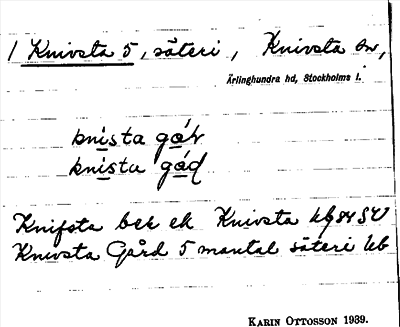 1 Knivsta 5, säteri, Knivsta sn,
Ärlinghundra hd, Stockholms l.
knista gå
knista gåd
Knifsta bek ek Knivsta
Knivsta Gård 5 mantal säteri
KARIN OTTOSSON 1939.